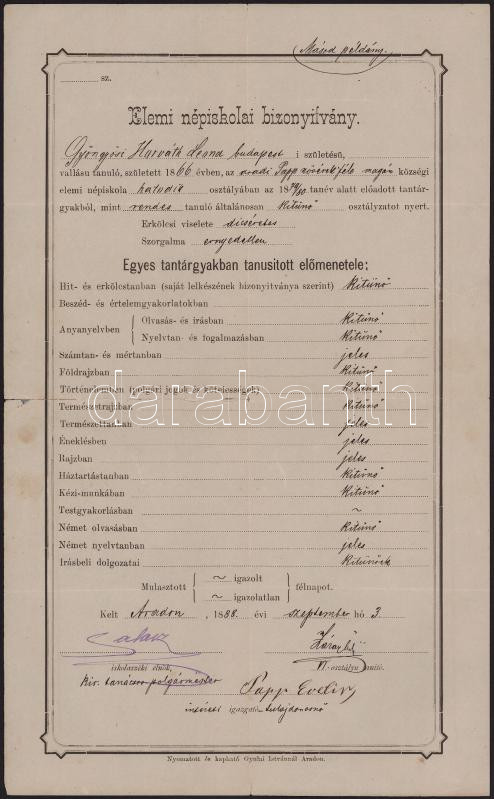 Másod példány.
sz.
Elemi népiskolai bizonyitvány.
Gyöngyösi Horváth Leona budapest i születésü,
vallásu tanuló, született 1866 évben, az aradi Papp nővérek féle magán községi
elemi népiskola hatodik osztályában az 1879/80 tanév alatt előadott tantár-
gyakból, mint rendes tanuló általánosan kitünő osztályzatot nyert.
Erkölcsi viselete dicséretes
Szorgalma ernyedetlen
Egyes tantárgyakban tanusitott előmenetele:
Hit- és erkölcstanban (saját lelkészének bizonyitványa szerint) kitünő
Beszéd- és értelemgyakorlatokban
Anyanyelvben Olvasás- és irásban kitünő
Nyelvtan- és fogalmazásban kitünő
Számtan- és mértanban jeles
Földrajzban kitünő
Történelemben (polgári jogok és kötelességek) kitünő
Természetrajzban kitünő
Természettanban jeles
Éneklésben jeles
Rajzban jeles
Háztartástanban kitünő
Kézi-munkában kitünő
Testgyakorlásban ~
Német olvasásban kitünő
Német nyelvtanban jeles
Irásbeli dolgozatai kitünőek
Mulasztott ~ igazolt félnapot.
~ igazolatlan
Kelt Aradon, 1888. évi szeptember hó 3.
iskolaszéki elnök, VI. osztályu tanító.
kir. tanácsos polgármester
Papp
intézeti igazgató tulajdonosnő
Nyomatott és kapható Gyulai Istvánnál Aradon.
darabanth